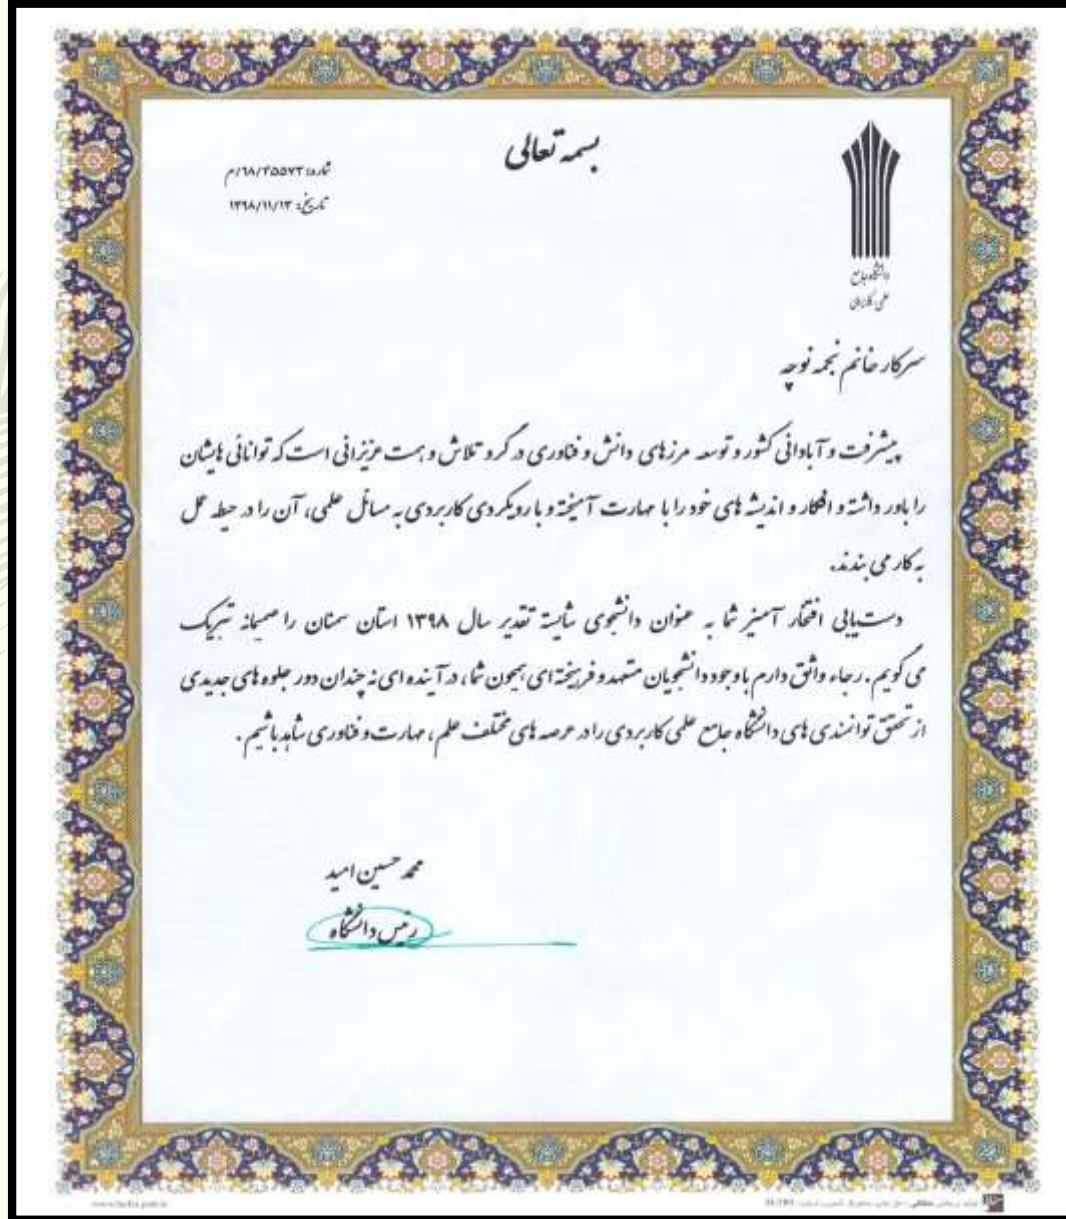 بسمه تعالی
شماره: ۶۸/۲۵۵۷۳/م
تاریخ: ۱۳۹۸/۱۱/۱۳
دانشگاه جامع
علمی کاربردی
سرکار خانم نجمه نوچه
پیشرفت و آبادانی کشور و توسعه مرزهای دانش و فناوری در گرو تلاش و همت عزیزانی است که توانائی هایشان
را باور داشته و افکار و اندیشه های خود را با مهارت آمیخته و با رویکردی کاربردی به مسائل علمی، آن را در حیطه عمل
به کار می بندند.
دست‌یابی افتخار آمیز شما به عنوان دانشجوی شایسته تقدیر سال ۱۳۹۸ استان سمنان را صمیمانه تبریک
می گویم. رجاء واثق دارم با وجود دانشجویان متعهد و فریخته ای همچون شما، در آینده ای نه چندان دور جلوه های جدیدی
از تحقق توانمندی های دانشگاه جامع علمی کاربردی را در عرصه های مختلف علم، مهارت و فناوری شاهد باشیم.
محمد حسین امید
رئیس دانشگاه